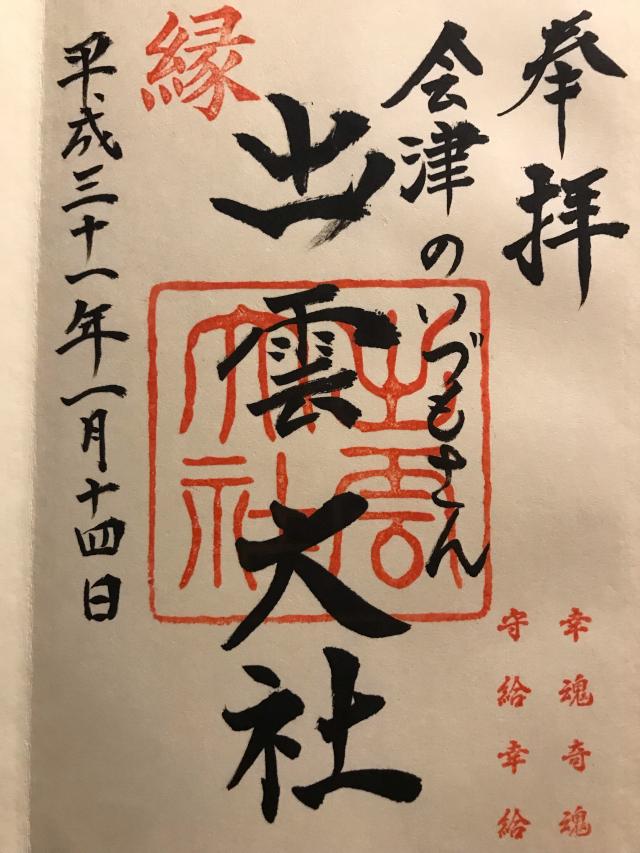 奉拝
会津のいづもさん
縁
出雲大社
出雲大社
平成三十一年一月十四日
幸魂奇魂
守給幸給